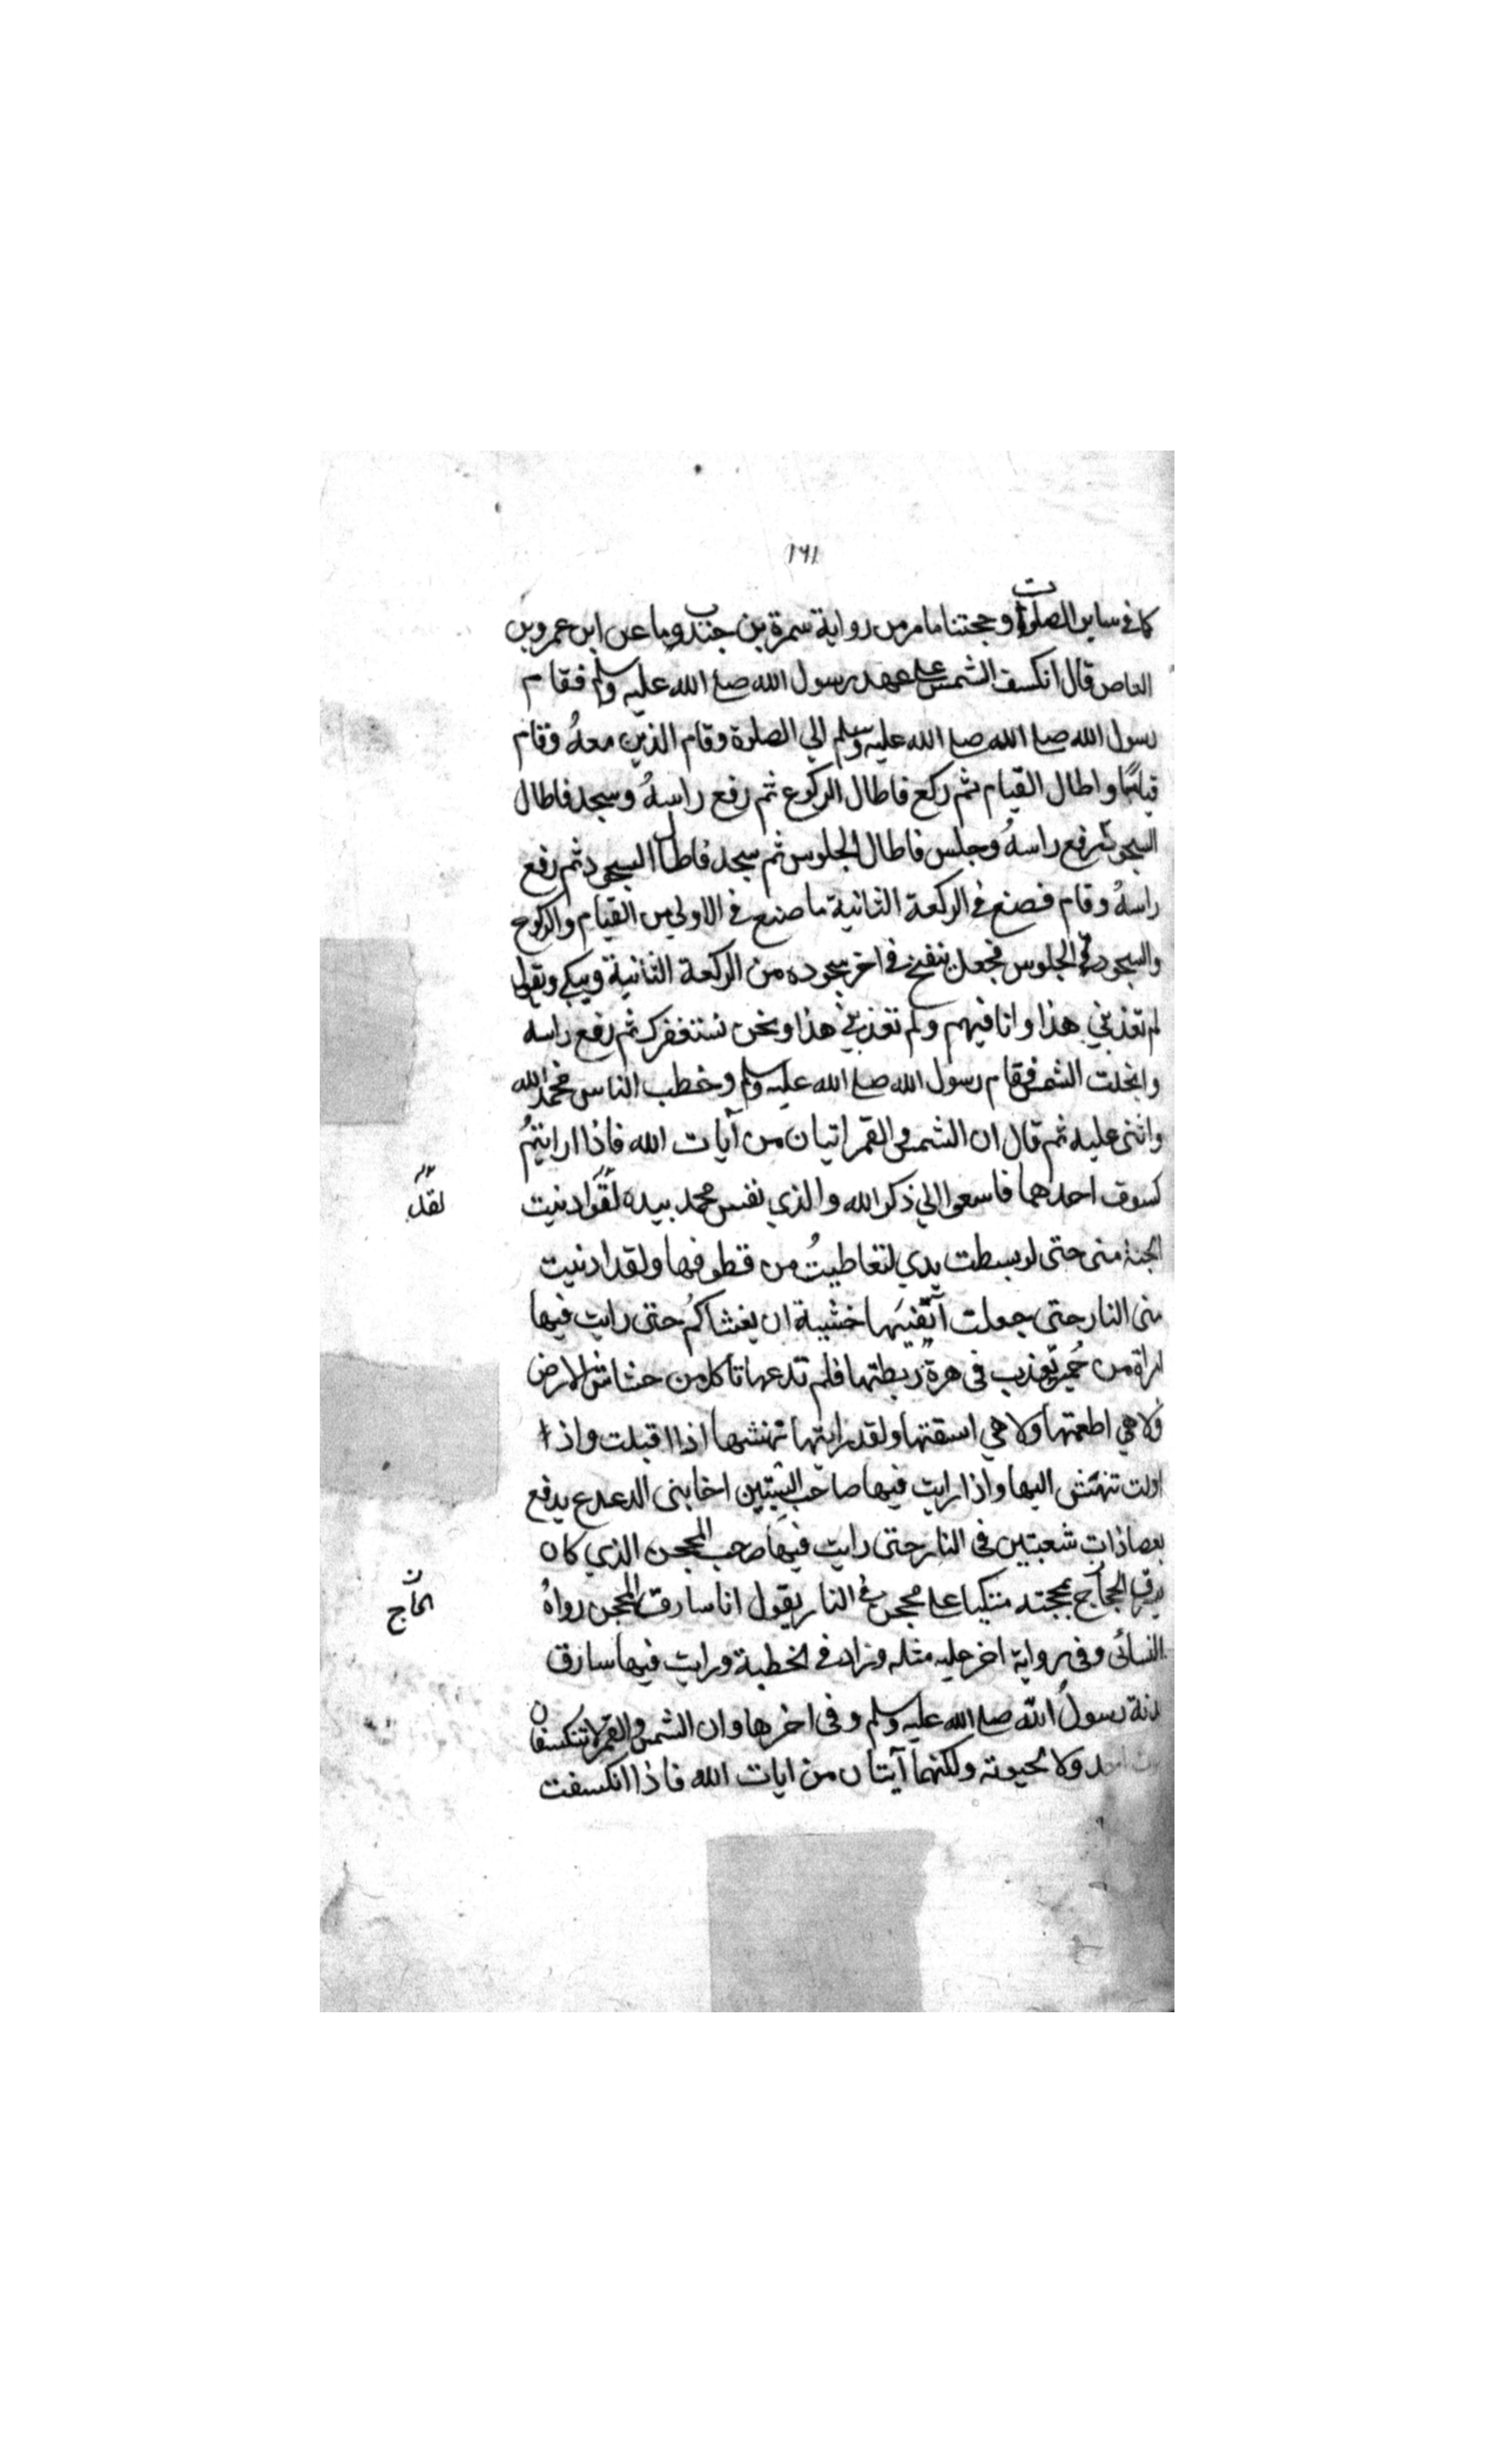 ١٦١
كما في ساير الصلوات وحجتنا ما مر من رواية سمرة بن جندب وما عن ابن عمرو بن
العاص قال انكسف الشمس على عهد رسول الله صلى الله عليه وسلم فقام
رسول الله صلى الله صلى الله عليه وسلم الي الصلوة وقام الذين معهُ وقام
قياما واطال القيام ثم ركع فاطال الركوع ثم رفع راسهُ وسجد فاطال
السجود ثم رفع راسهُ وجلس فاطال الجلوس ثم سجد فاطال السجود ثم رفع
راسهُ وقام فصنع في الركعة الثانية ما صنع في الاولي من القيام والركوع
والسجود والجلوس فجعل ينفخ في اخر سجوده من الركعة الثانية ويبكي ويقول
لم تعذبني هذا وانا فيهم ولم تعذبني هذا ونحن نستغفرك ثم رفع راسه
وانجلت الشمس فقام رسول الله صلى الله عليه وسلم وخطب الناس فحمد الله
واثنى عليه ثم قال ان الشمس والقمر اتيان من آيات الله فاذا ارايتمُ
كسوف احداهما فاسعوا الي ذكر الله والذي نفس محمد بيده لقد ادنيت
لقد
الجنة منى حتى لو بسطت يدي لتعاطيتُ من قطوفها ولقد ادنيت
منى النار حتى جعلت اتقيها خشية ان يغشاكُم حتى رايت فيها
امراة من حُمير تعذب فى هرة ربطتها فلم تدعها تاكل من خشاش الارض
فلا هي اطعمتها ولا هي اسقتها ولقد رايتها تنهشها اذا اقبلت واذا
اولت تنهش اليها واذا رايت فيها صاحب السبتيين اخا بنى الدعدع يدفع
بعصا ذات شعبتين فى النار حتى رايت فيها صاحب المحجن الذي كان
يسرق الحجاج بمحجنه متكيا على محجن في النار يقول انا سارق المحجن رواهُ
الحاج
النسائى وفى رواية اخر جليه مثله وزاد في الخطبة ورايت فيها سارق
بدنة رسول الله صلى الله عليه وسلم وفى اخرها وان الشمس والقمر لا تنكسفان
احد ولا لحيوته ولكنهما آيتان من ايات الله فاذا انكسفت